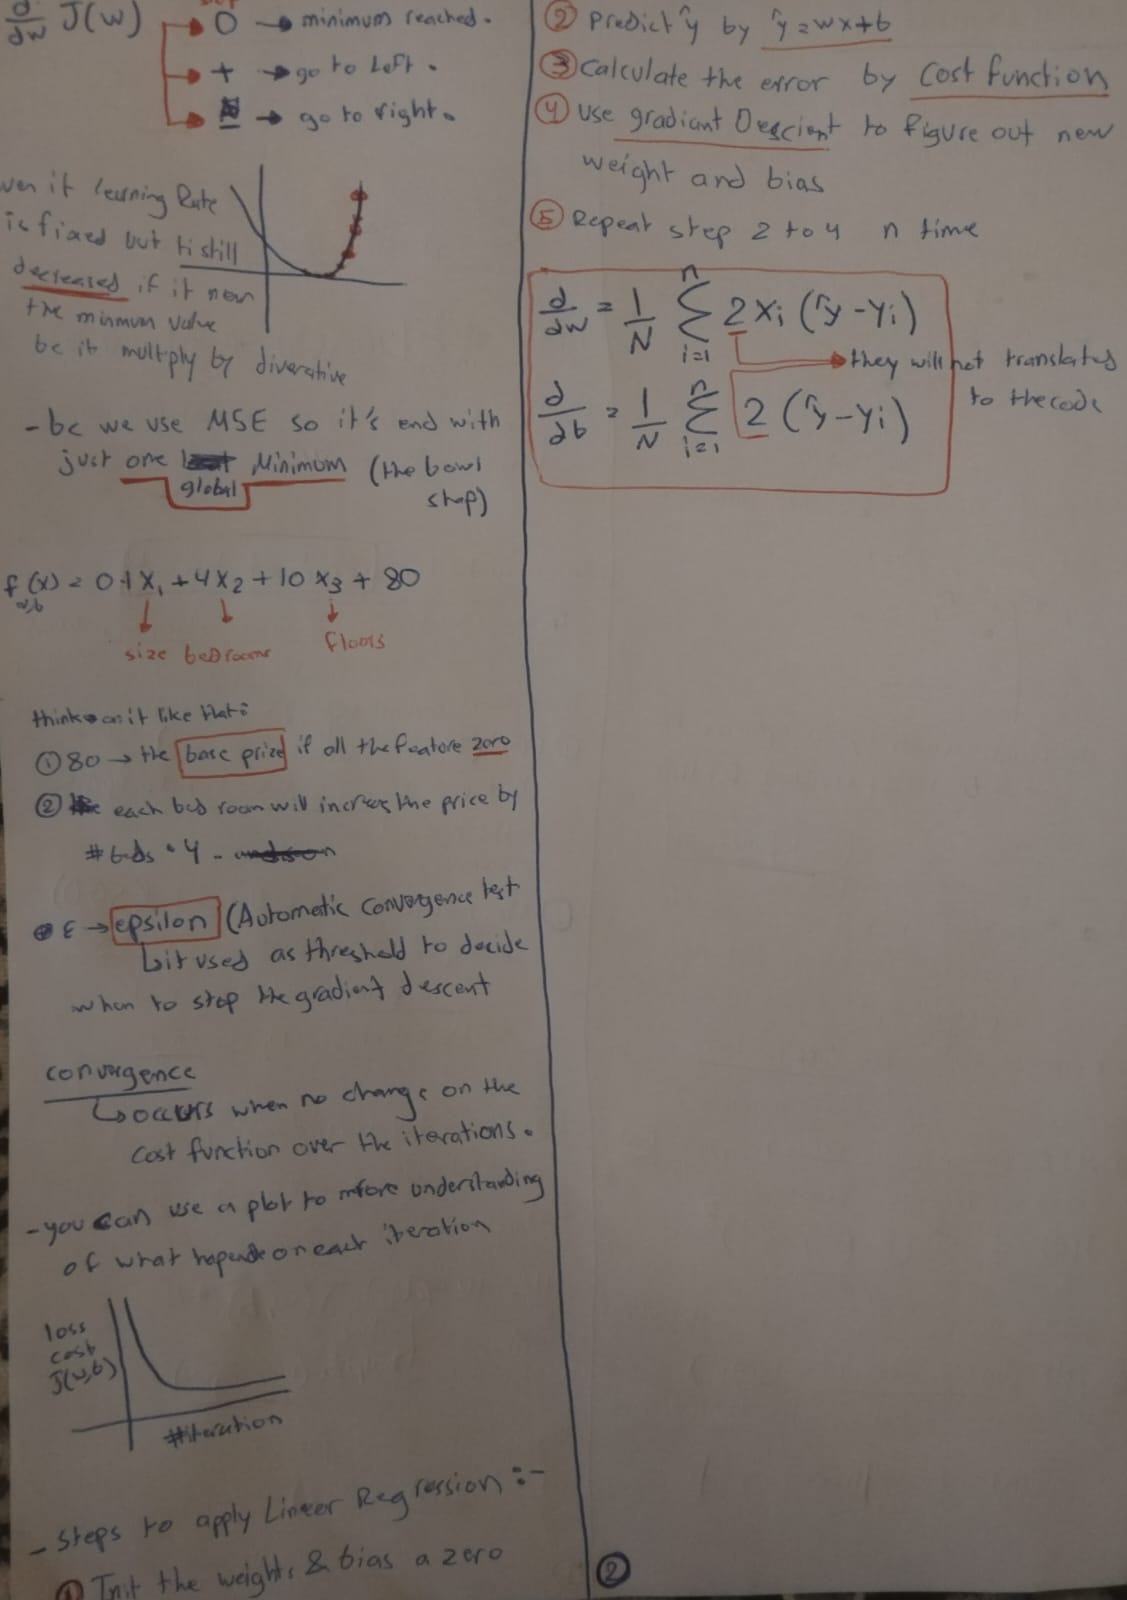 d/dw J(w) → 0 → minimum reached.
+ → go to Left.
- → go to right.
if learning Rate
is fixed but ti still
decreased if it near
the minmum value
bc it multply by diverative
- bc we use MSE so it's end with
just one global Minimum (the bowl
shap)
f(x) = 0.1 x₁ + 4 x₂ + 10 x₃ + 80
w,b
size bedrooms floors
think on it like that:
① 80 → the base prize if all the feature zero
② each bed room will increes the price by
#beds * 4 -
ε → epsilon (Automatic Convergence test
it used as threshold to decide
when to stop the gradient descent
convergence
↳ occurs when no change on the
cost function over the iterations.
- you can use a plot to more understanding
of what hapends on each iteration
loss
cost
J(w,b)
#iteration
- steps to apply Lineer Regression :-
① Init the weights & bias a zero
② Predict ŷ by ŷ = wx + b
③ Calculate the error by cost function
④ use gradiant Descient to figure out new
weight and bias
⑤ Repeat step 2 to 4 n time
d/dw = 1/N Σ i=1 n 2xᵢ (ŷ - yᵢ)
they will not translates
to the code
d/db = 1/N Σ i=1 n 2 (ŷ - yᵢ)
②